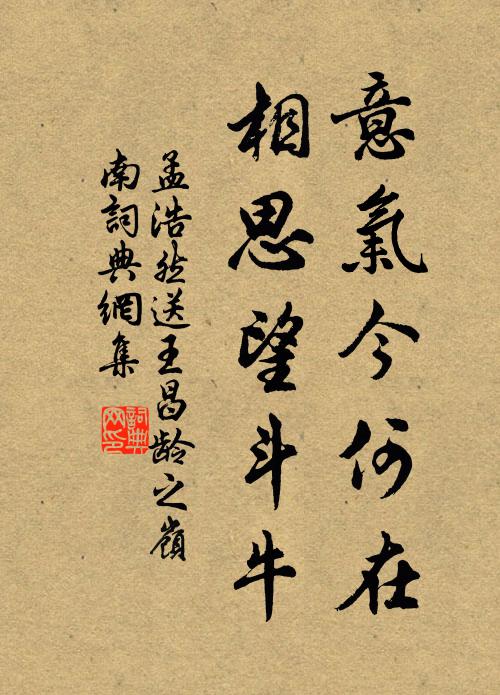 意氣今何在
相思望斗牛
孟浩然送王昌龄之嶺
南詞典網集
詞典网印